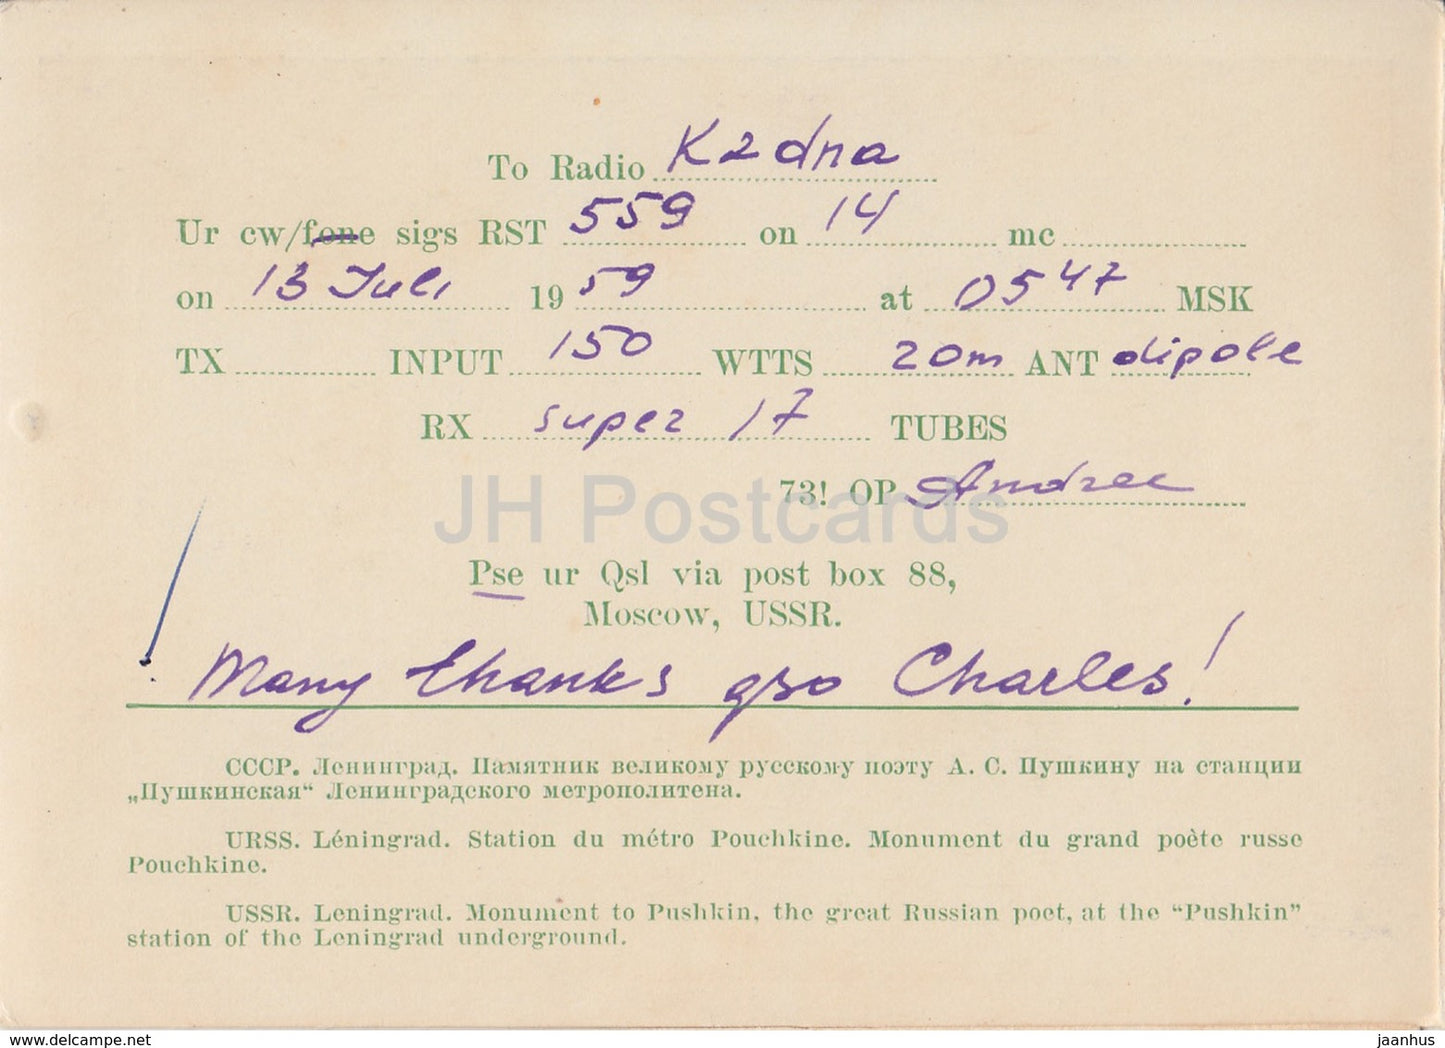 To Radio K2dna
Ur cw/fone sigs RST 559 on 14 mc
on 13 Juli 1959 at 0547 MSK
TX INPUT 150 WTTS 20m ANT dipole
RX super 17 TUBES
73! OP Andree
JH Postcards
Pse ur Qsl via post box 88,
Moscow, USSR.
! Many thanks qso Charles!
СССР. Ленинград. Памятник великому русскому поэту А. С. Пушкину на станции
„Пушкинская“ Ленинградского метрополитена.
URSS. Léningrad. Station du métro Pouchkine. Monument du grand poète russe
Pouchkine.
USSR. Leningrad. Monument to Pushkin, the great Russian poet, at the “Pushkin”
station of the Leningrad underground.
www.delcampe.net
jaanhus